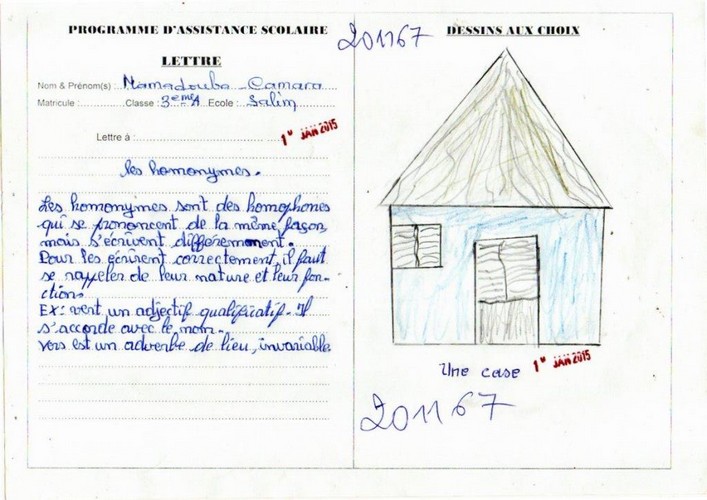 PROGRAMME D'ASSISTANCE SCOLAIRE
201167
LETTRE
Nom & Prénom(s) : Mamadouba Camara
Matricule : Classe : 3ème A Ecole : Salim
Lettre à :
1er JAN 2015
les homonymes.
Les homonymes sont des homophones
qui se prononcent de la même façon,
mais s'écrivent différemment.
Pour les écrire correctement, il faut
se rappeler de leur nature et leur fon-
ction.
EX: vert un adjectif qualificatif. Il
s'accorde avec le nom.
vers est un adverbe de lieu, invariable
DESSINS AUX CHOIX
Une case
1er JAN 2015
201167